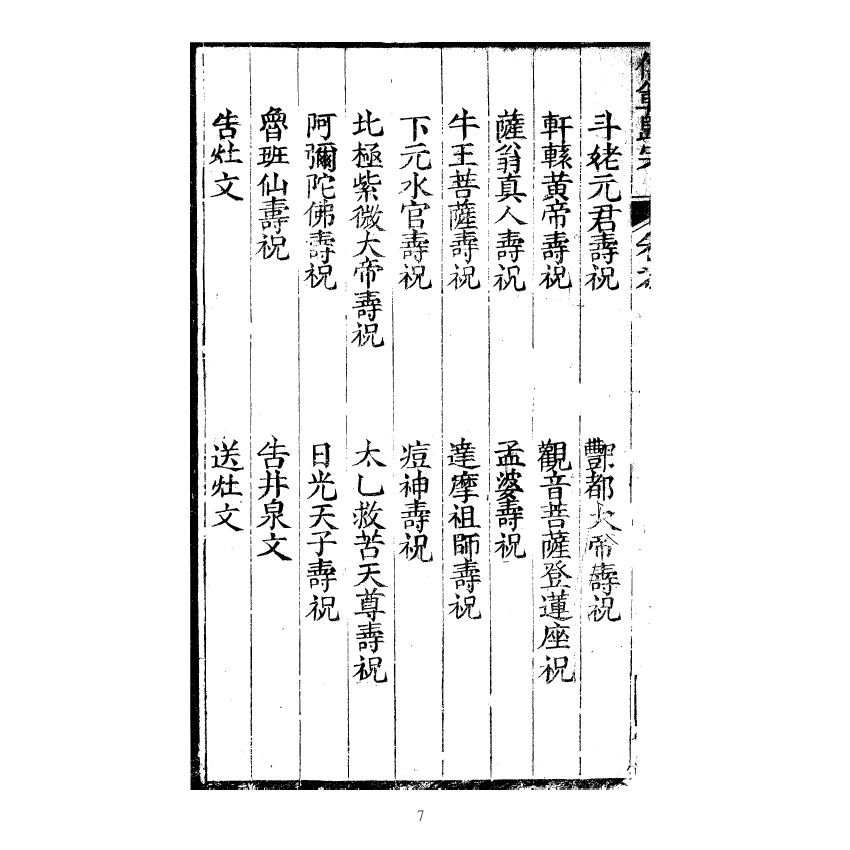 斗姥元君壽祝　酆都大帝壽祝
軒轅黃帝壽祝　觀音菩薩登蓮座祝
薩翁真人壽祝　孟婆壽祝
牛王菩薩壽祝　達摩祖師壽祝
下元水官壽祝　痘神壽祝
北極紫微大帝壽祝　太乙救苦天尊壽祝
阿彌陀佛壽祝　日光天子壽祝
魯班仙壽祝　告井泉文
告灶文　送灶文
7